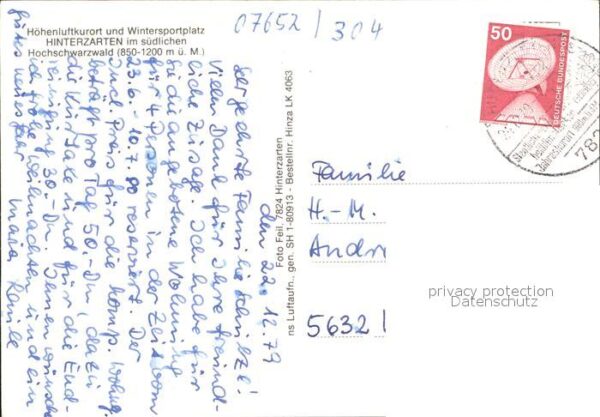 Höhenluftkurort und Wintersportplatz
HINTERZARTEN im südlichen
Hochschwarzwald (850-1200 m ü. M.)
07652 / 304
den 22. 12. 79
Sehr geehrte Familie
Vielen Dank für Ihre freund-
liche Zusage. Ich habe für
Sie die angebotene Wohnung
für 4 Personen in der Zeit vom
23.6. - 10.7.80 reserviert. Der
Preis für die komp. Wohng.
beträgt pro Tag 50,- DM, dazu
die Kurtaxe und für die End-
reinigung 30,- DM. Ihnen wünsche
ich frohe Weihnachten und ein
gutes neues Jahr
Maria
Foto Feil, 7824 Hinterzarten
ns Luftaufn., gen. SH 1-80913 - Bestellnr. Hinza LK 4063
50
DEUTSCHE BUNDESPOST
782
Familie
H.-M.
Andr
5632 |
privacy protection
Datenschutz